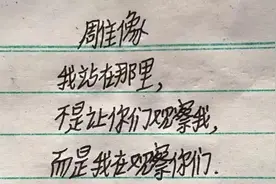 雕住像
我站在那里，
不是让你们观察我，
而是我在观察你们.